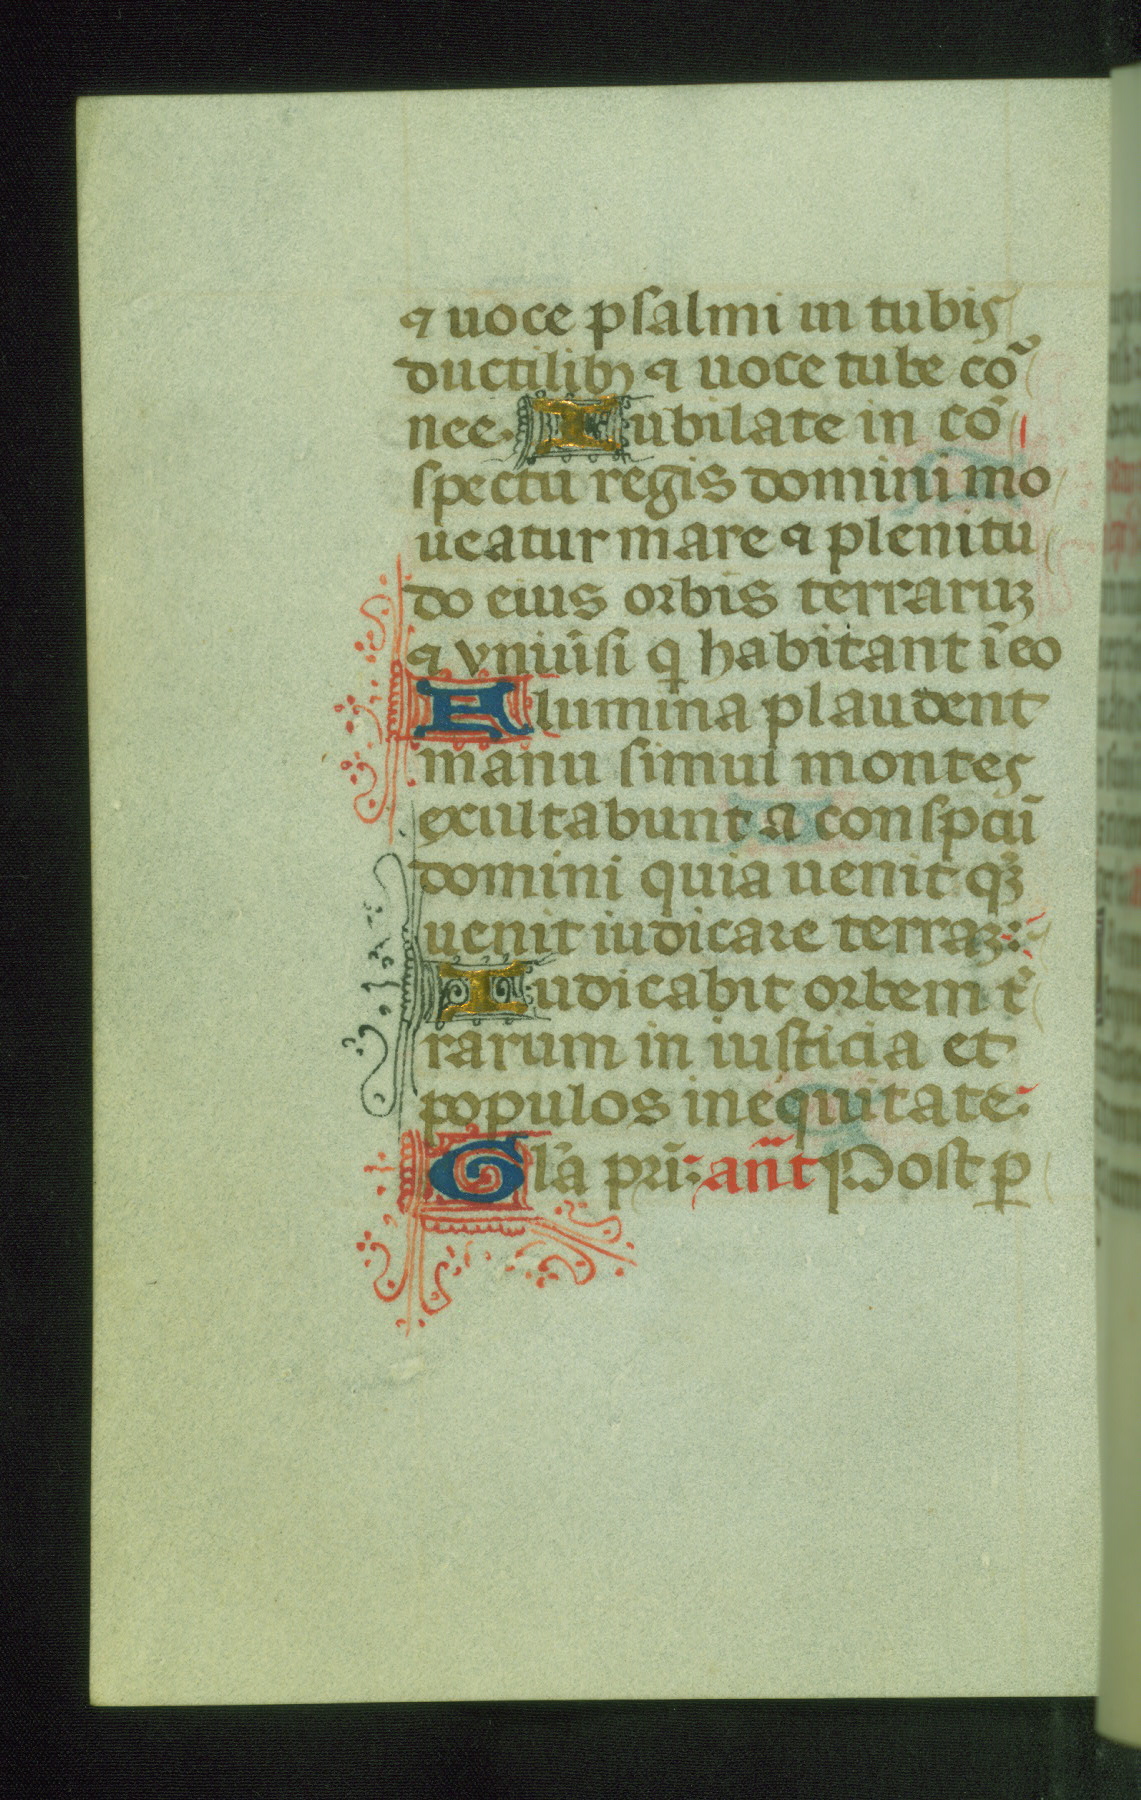 ⁊ uoce psalmi in tubis
ductilibꝫ ⁊ uoce tube cō
nee. Iubilate in cō
spectu regis domini mo
ueatur mare ⁊ pleni­tu
do eius orbis terraruꝫ
⁊ vniūsi q̄ habitant ī eo
Flumina plaudent
manu simul montes
exultabunt a conspcū
domini quia uenit qꝫ
uenit iudicare terraꝫ:
Iudicabit orbem t̄
rarum in iusticia et
populos in equitate:
Gla pri: an̄t Post ꝑ